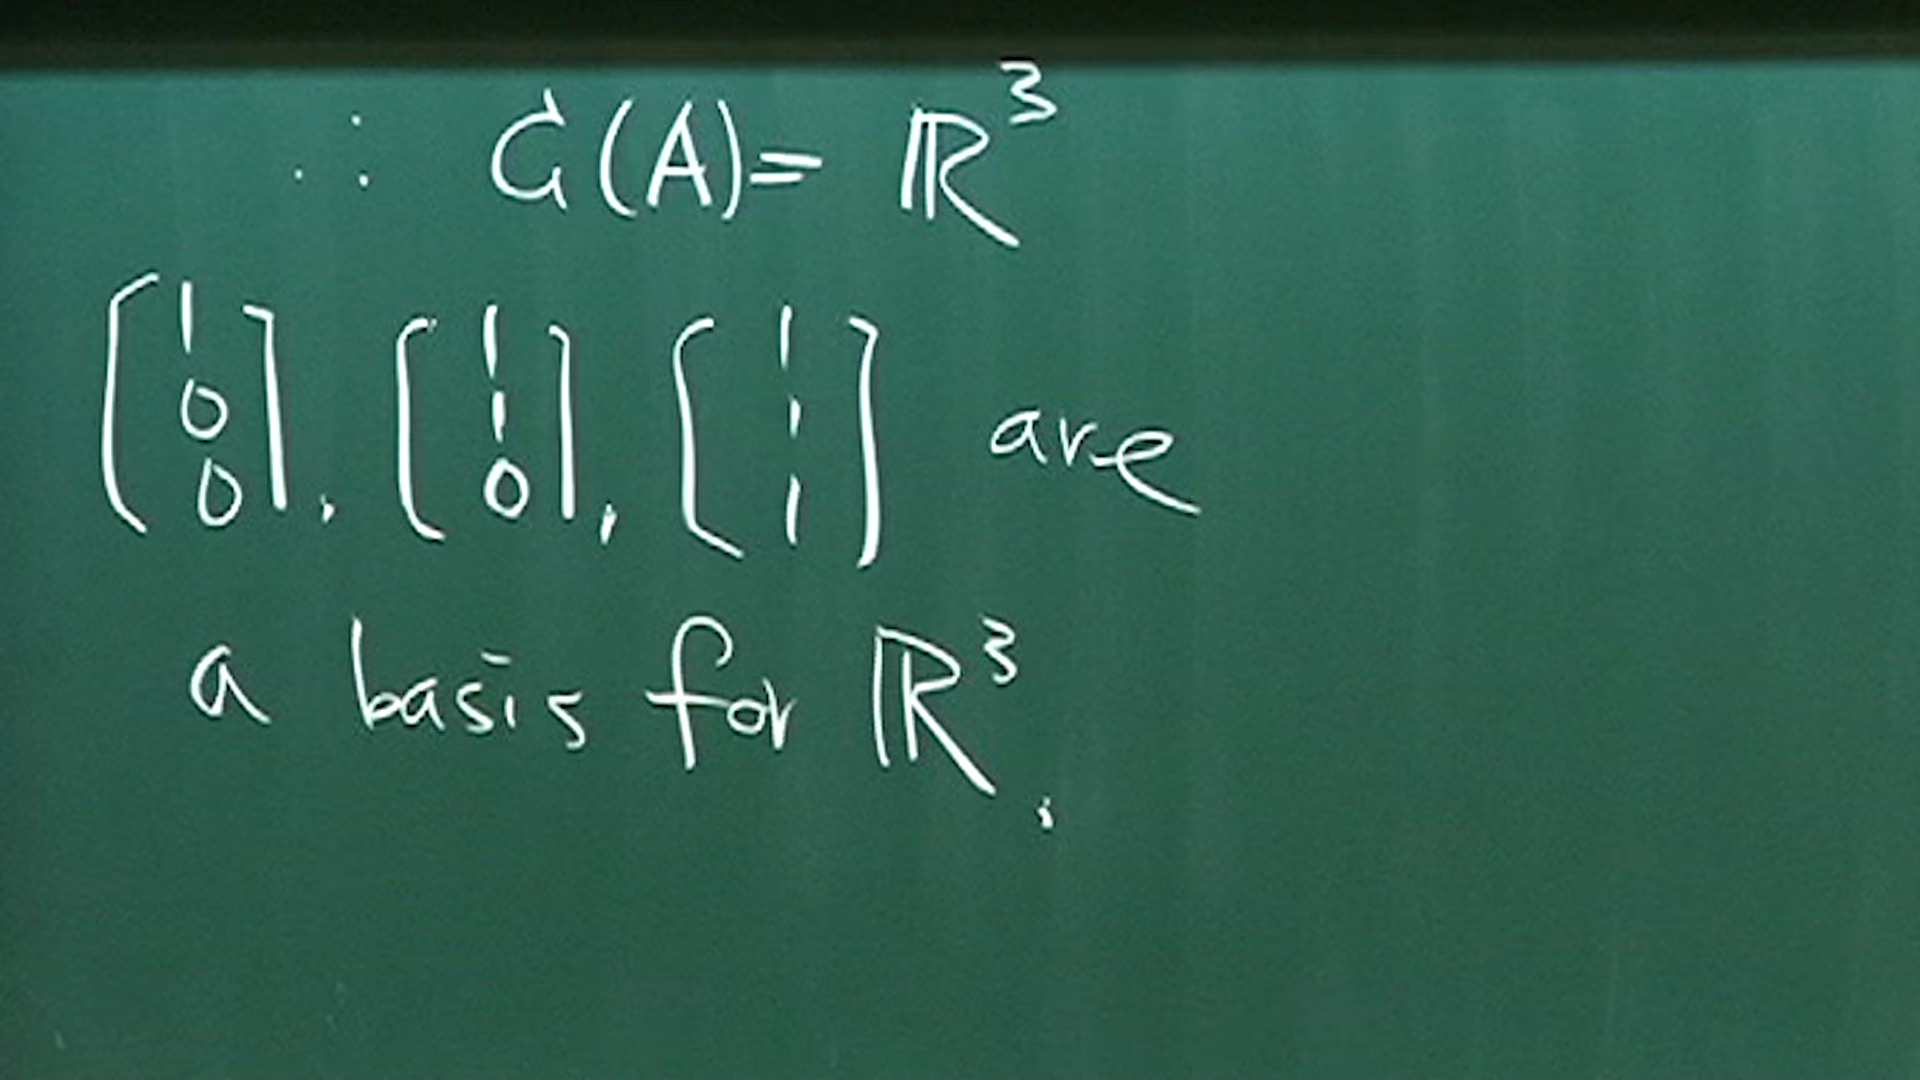 ∴ C(A) = ℝ³
[1 0 0], [1 1 0], [1 1 1] are
a basis for ℝ³.